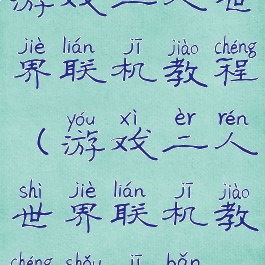 游戏二人世
jiè lián jī jiào chéng
界联机教程
yóu xì èr rén
(游戏二人
shì jiè lián jī jiào
世界联机教
chéng shǒu jī bǎn